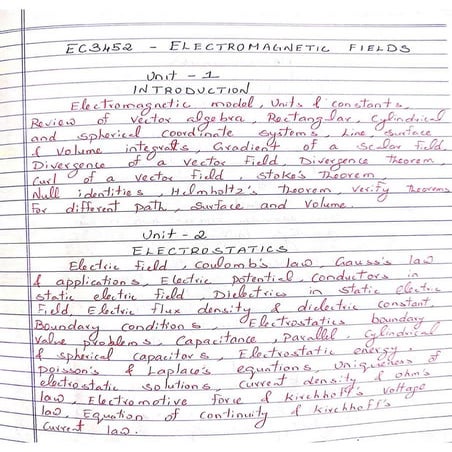 EC3452 - ELECTROMAGNETIC FIELDS
Unit - 1
INTRODUCTION
Electromagnetic model, Units & constants,
Review of vector algebra, Rectangular, Cylindrical
and spherical coordinate systems, Line, surface
& volume integrals, Gradient of a scalar field,
Divergence of a vector field, Divergence theorem,
Curl of a vector field, Stoke's theorem
Null identities, Helmholtz's theorem, verify theorems
for different path, surface and volume.
Unit - 2
ELECTROSTATICS
Electric field, coulomb's law, Gauss's law
& applications, Electric potential, conductors in
static electric field, Dielectrics in static electric
Field, Electric flux density & dielectric constant,
Boundary conditions, Electrostatics boundary
value problems, Capacitance, parallel, Cylindrical
& spherical capacitors, Electrostatic energy
poisson's & Laplace's equations, uniqueness of
electrostatic solutions, current density & ohm's
law, Electromotive force & kirchhoff's voltage
law, Equation of continuity & kirchhoff's
current law.